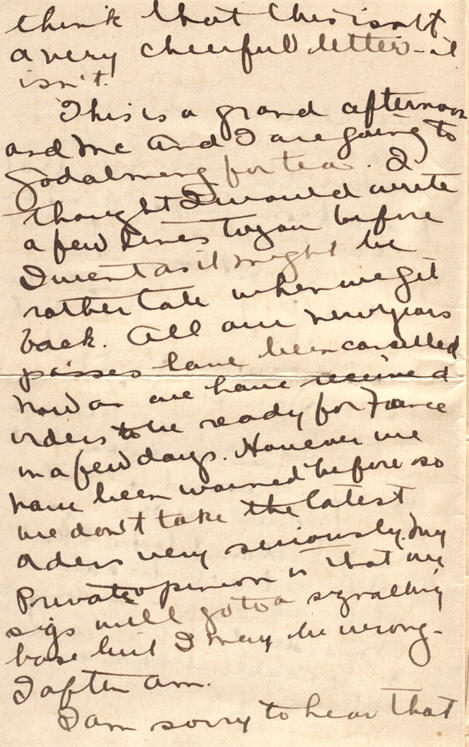 think that this isn't
a very cheerful letter - it
isn't.
This is a grand afternoon
and Mc and I are going to
Godalming for tea. I
thought I would write
a few lines to you before
I went as it might be
rather late when we get
back. All our new years
passes have been cancelled
now as we have received
orders to be ready for France
in a few days. However we
have been warned before so
we don't take the latest
orders very seriously. My
private opinion is that we
sigs will go to a signalling
base but I may be wrong -
I often am.
I am sorry to hear that